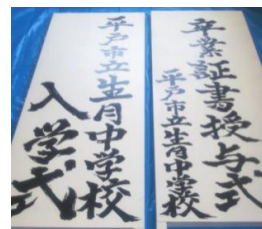 卒業証書授与式
平戸市立生月中学校
平戸市立生月中学校
入学式